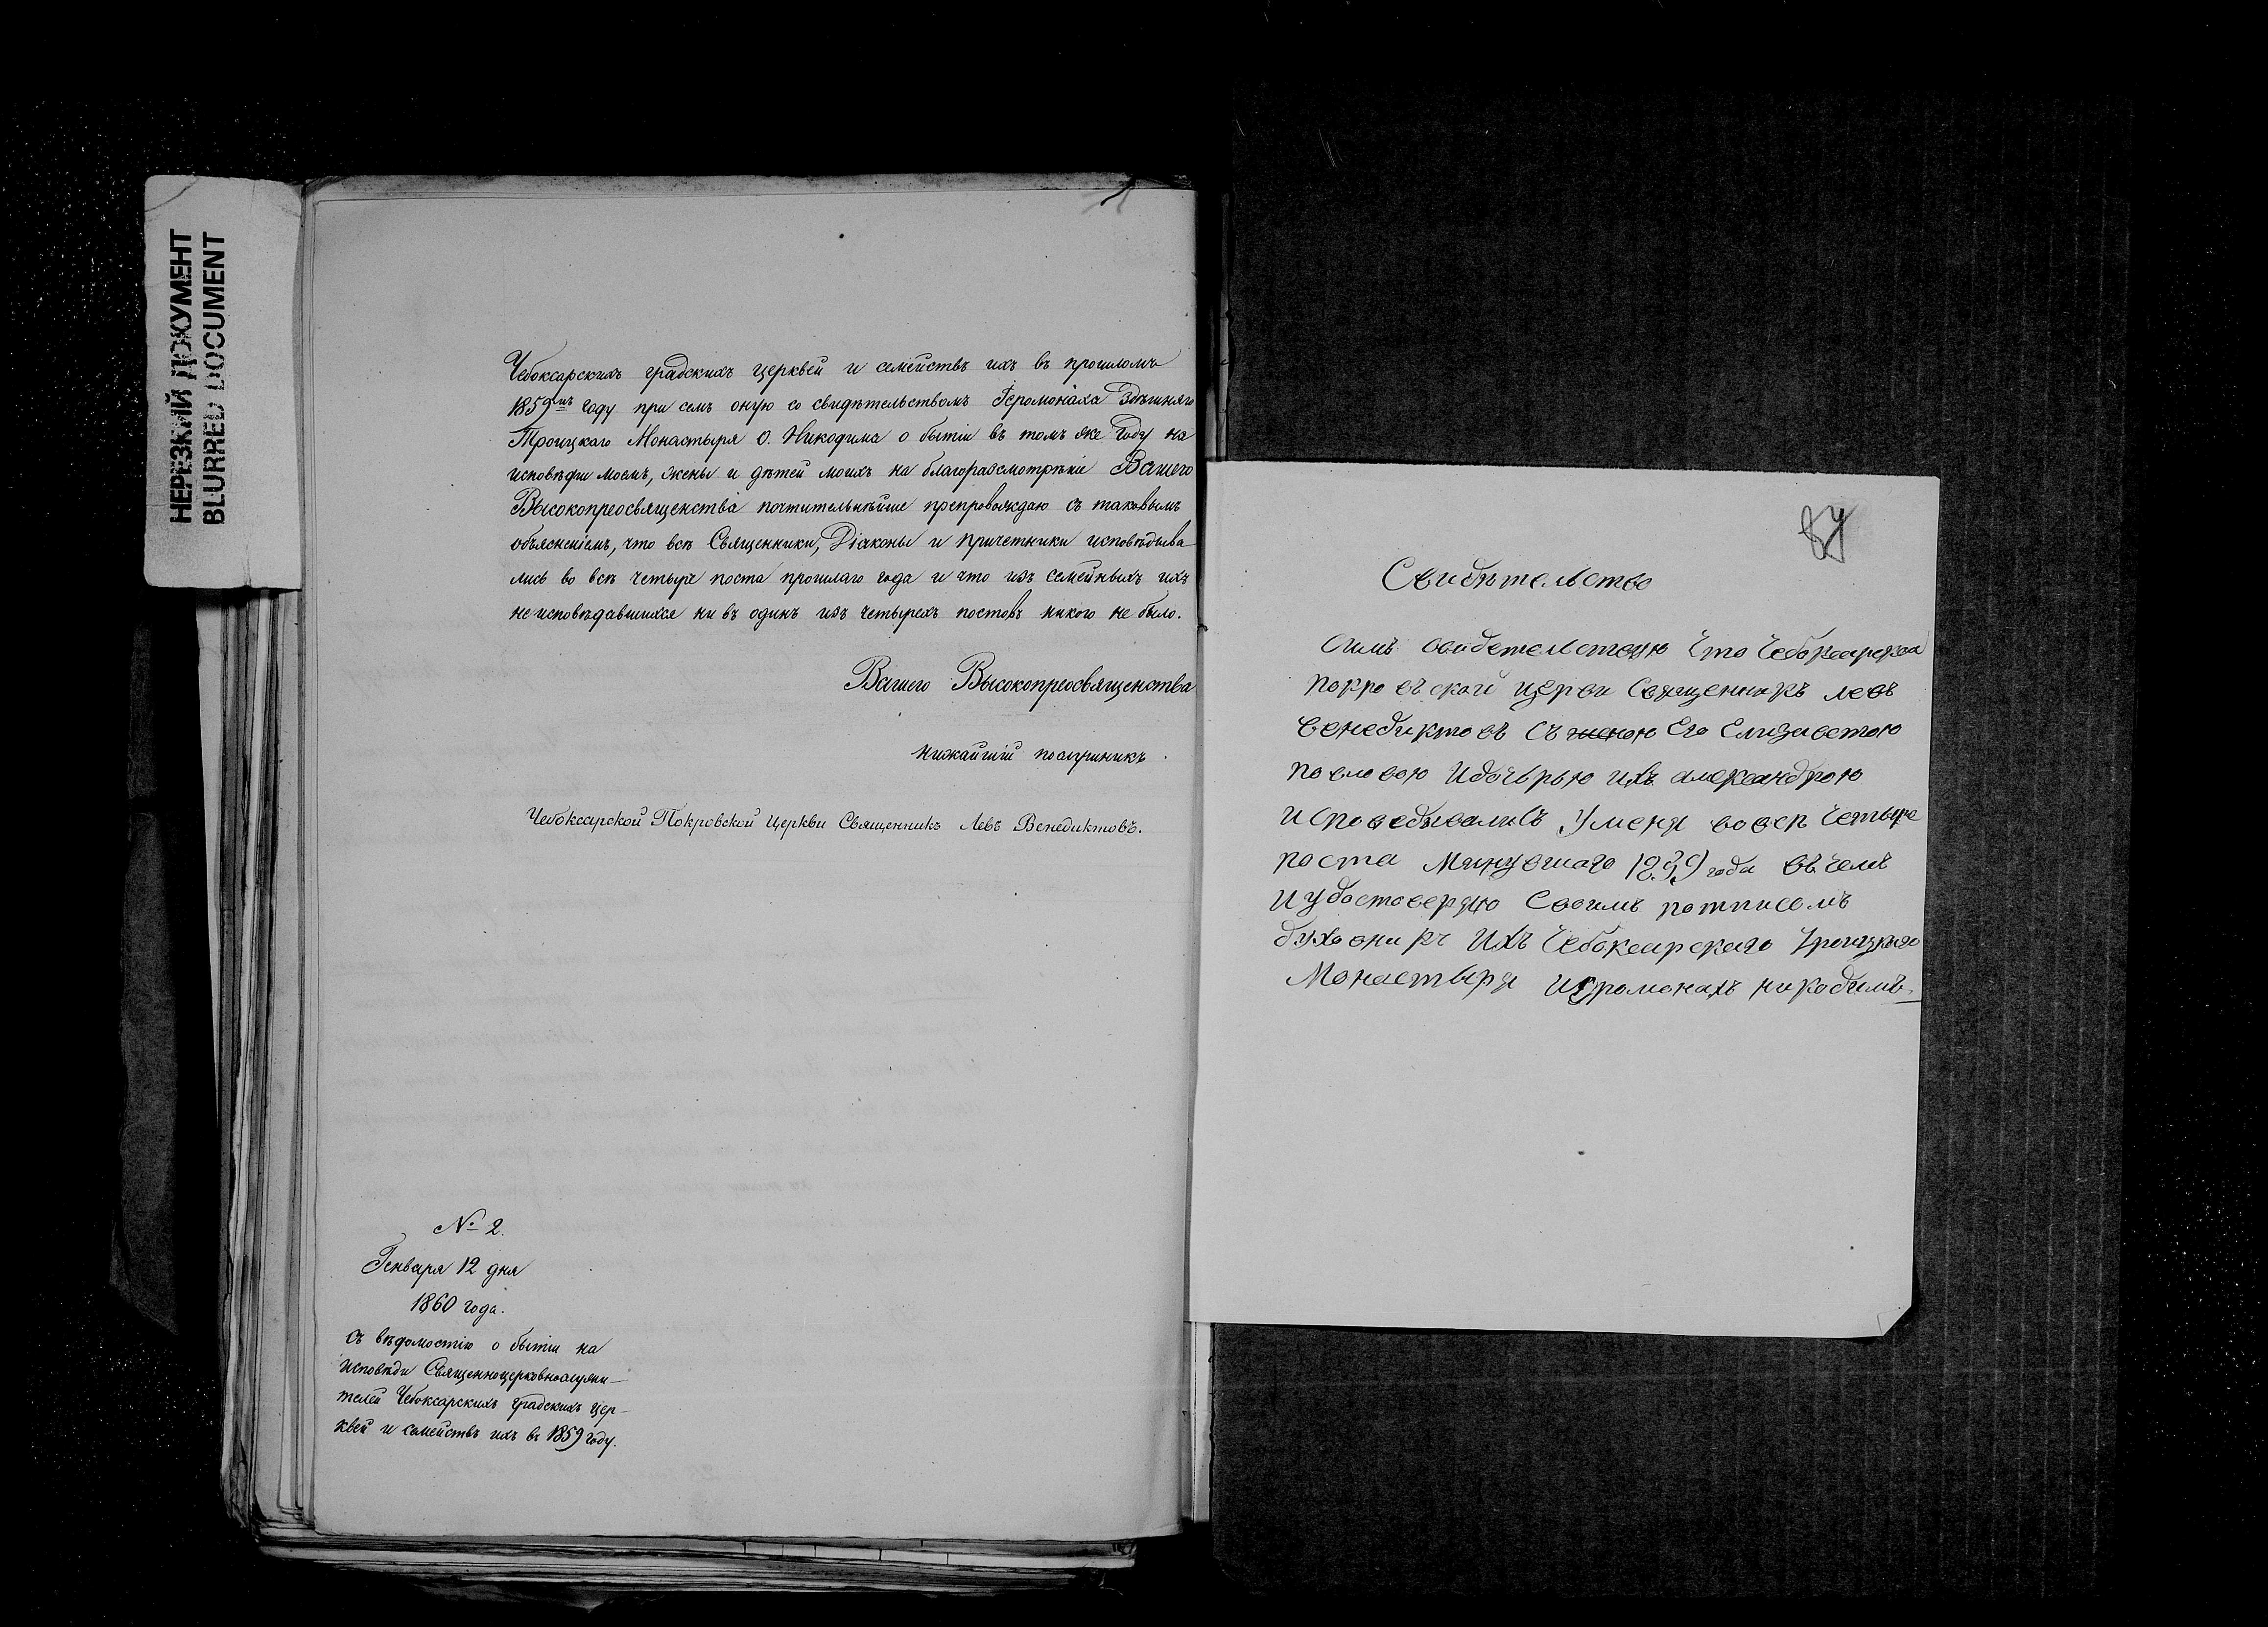 НЕРЕЗКИЙ ДОКУМЕНТ
BLURRED DOCUMENT
Чебоксарскихъ градскихъ церквей и семействъ ихъ въ прошломъ
1859мъ году при семъ оную со свидѣтельствомъ Іеромонаха Здѣшняго
Троицкаго Монастыря О. Никодима о бытіи въ томъ же году на
исповѣди моемъ, жены и дѣтей моихъ на благоразсмотрѣніе Вашего
Высокопреосвященства почтительнѣйше препровождаю съ таковымъ
объясненіемъ, что всѣ Священники, Діаконы и причетники исповѣдыва
лись во всѣ четыре поста прошлаго года и что изъ семейныхъ ихъ
не исповѣдавшихся ни въ одинъ изъ четырехъ постовъ никого не было.
Вашего Высокопреосвященства
нижайшій послушникъ
Чебоксарской Покровской Церкви Священникъ Левъ Венедиктовъ.
№ 2.
Генваря 12 дня
1860 года.
Съ вѣдомостію о бытіи на
исповѣди Священноцерковнослужи-
телей Чебоксарскихъ градскихъ цер-
квей и семействъ ихъ въ 1859 году.
84
Свидѣтельство
Симъ свидетельствую Что Чебоксарская
покровской церви Священникъ левъ
венедиктовъ Съ женою Его Елизаветою
павловою И дочѣрью ихъ александрою
Исповедывались У меня во всѣ Четыре
поста Минувшаго 1859 года въ чемъ
И удостоверяю Своимъ потписомъ
духовникъ Ихъ Чебоксарскаго Троицкаго
Монастыря Иеромонахъ никодимъ